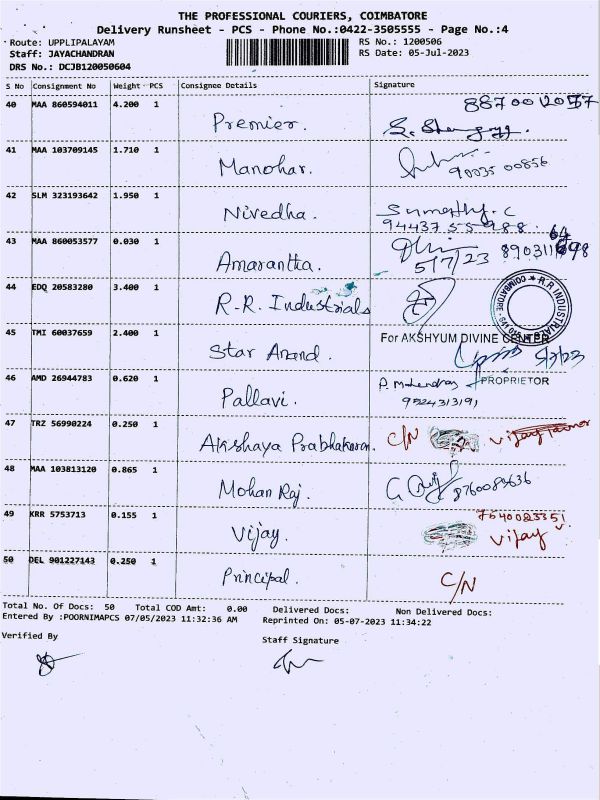 THE PROFESSIONAL COURIERS, COIMBATORE
Delivery Runsheet - PCS - Phone No.:0422-3505555 - Page No.:4
Route: UPPLIPALAYAM
RS No.: 1200506
Staff: JAYACHANDRAN
RS Date: 05-Jul-2023
DRS No.: DCJB120050604
S No Consignment No Weight PCS Consignee Details Signature
40 MAA 860594011 4.200 1
Premier.
41 MAA 103709145 1.710 1
Manohar.
90035 00856
42 SLM 323193642 1.950 1
Nivedha.
Sumathy.C
94437 55 988
43 MAA 860053577 0.030 1
Amarantha.
5/7/23
44 EDQ 20583280 3.400 1
R.R. Industrials
R.R INDUSTRIALS COIMBATORE
45 TMI 60037659 2.400 1
Star Anand.
For AKSHYUM DIVINE CENTER
5/7/23
46 AMD 26944783 0.620 1
Pallavi.
P. Mahendran
PROPRIETOR
9524313191
47 TRZ 56990224 0.250 1
Akshaya Prabhakaran.
C/N
Vijay
48 MAA 103813120 0.865 1
Mohan Raj.
8760083636
49 KRR 5753713 0.155 1
Vijay.
7540023351
Vijay
50 DEL 901227143 0.250 1
Principal.
C/N
Total No. Of Docs: 50 Total COD Amt: 0.00 Delivered Docs: Non Delivered Docs:
Entered By :POORNIMAPCS 07/05/2023 11:32:36 AM Reprinted On: 05-07-2023 11:34:22
Verified By
Staff Signature